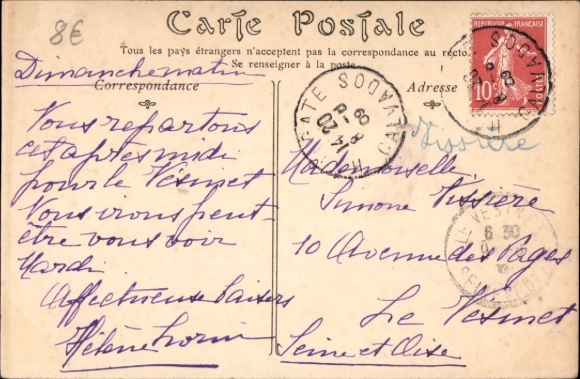 8€
Carte Postale
Tous les pays étrangers n'acceptent pas la correspondance au recto
Se renseigner à la poste
Correspondance
Adresse
Dimanche matin
Nous repartons
cet après midi
pour le Vésinet
Nous irons peut-
être vous voir
Mardi
Affectueux baisers
Hélène
Mademoiselle
Simone Vissière
10 Avenue des Pages
Le Vesinet
Seine et Oise
REPUBLIQUE FRANÇAISE
10
CALVADOS
14 20
LE VESINET
6 30